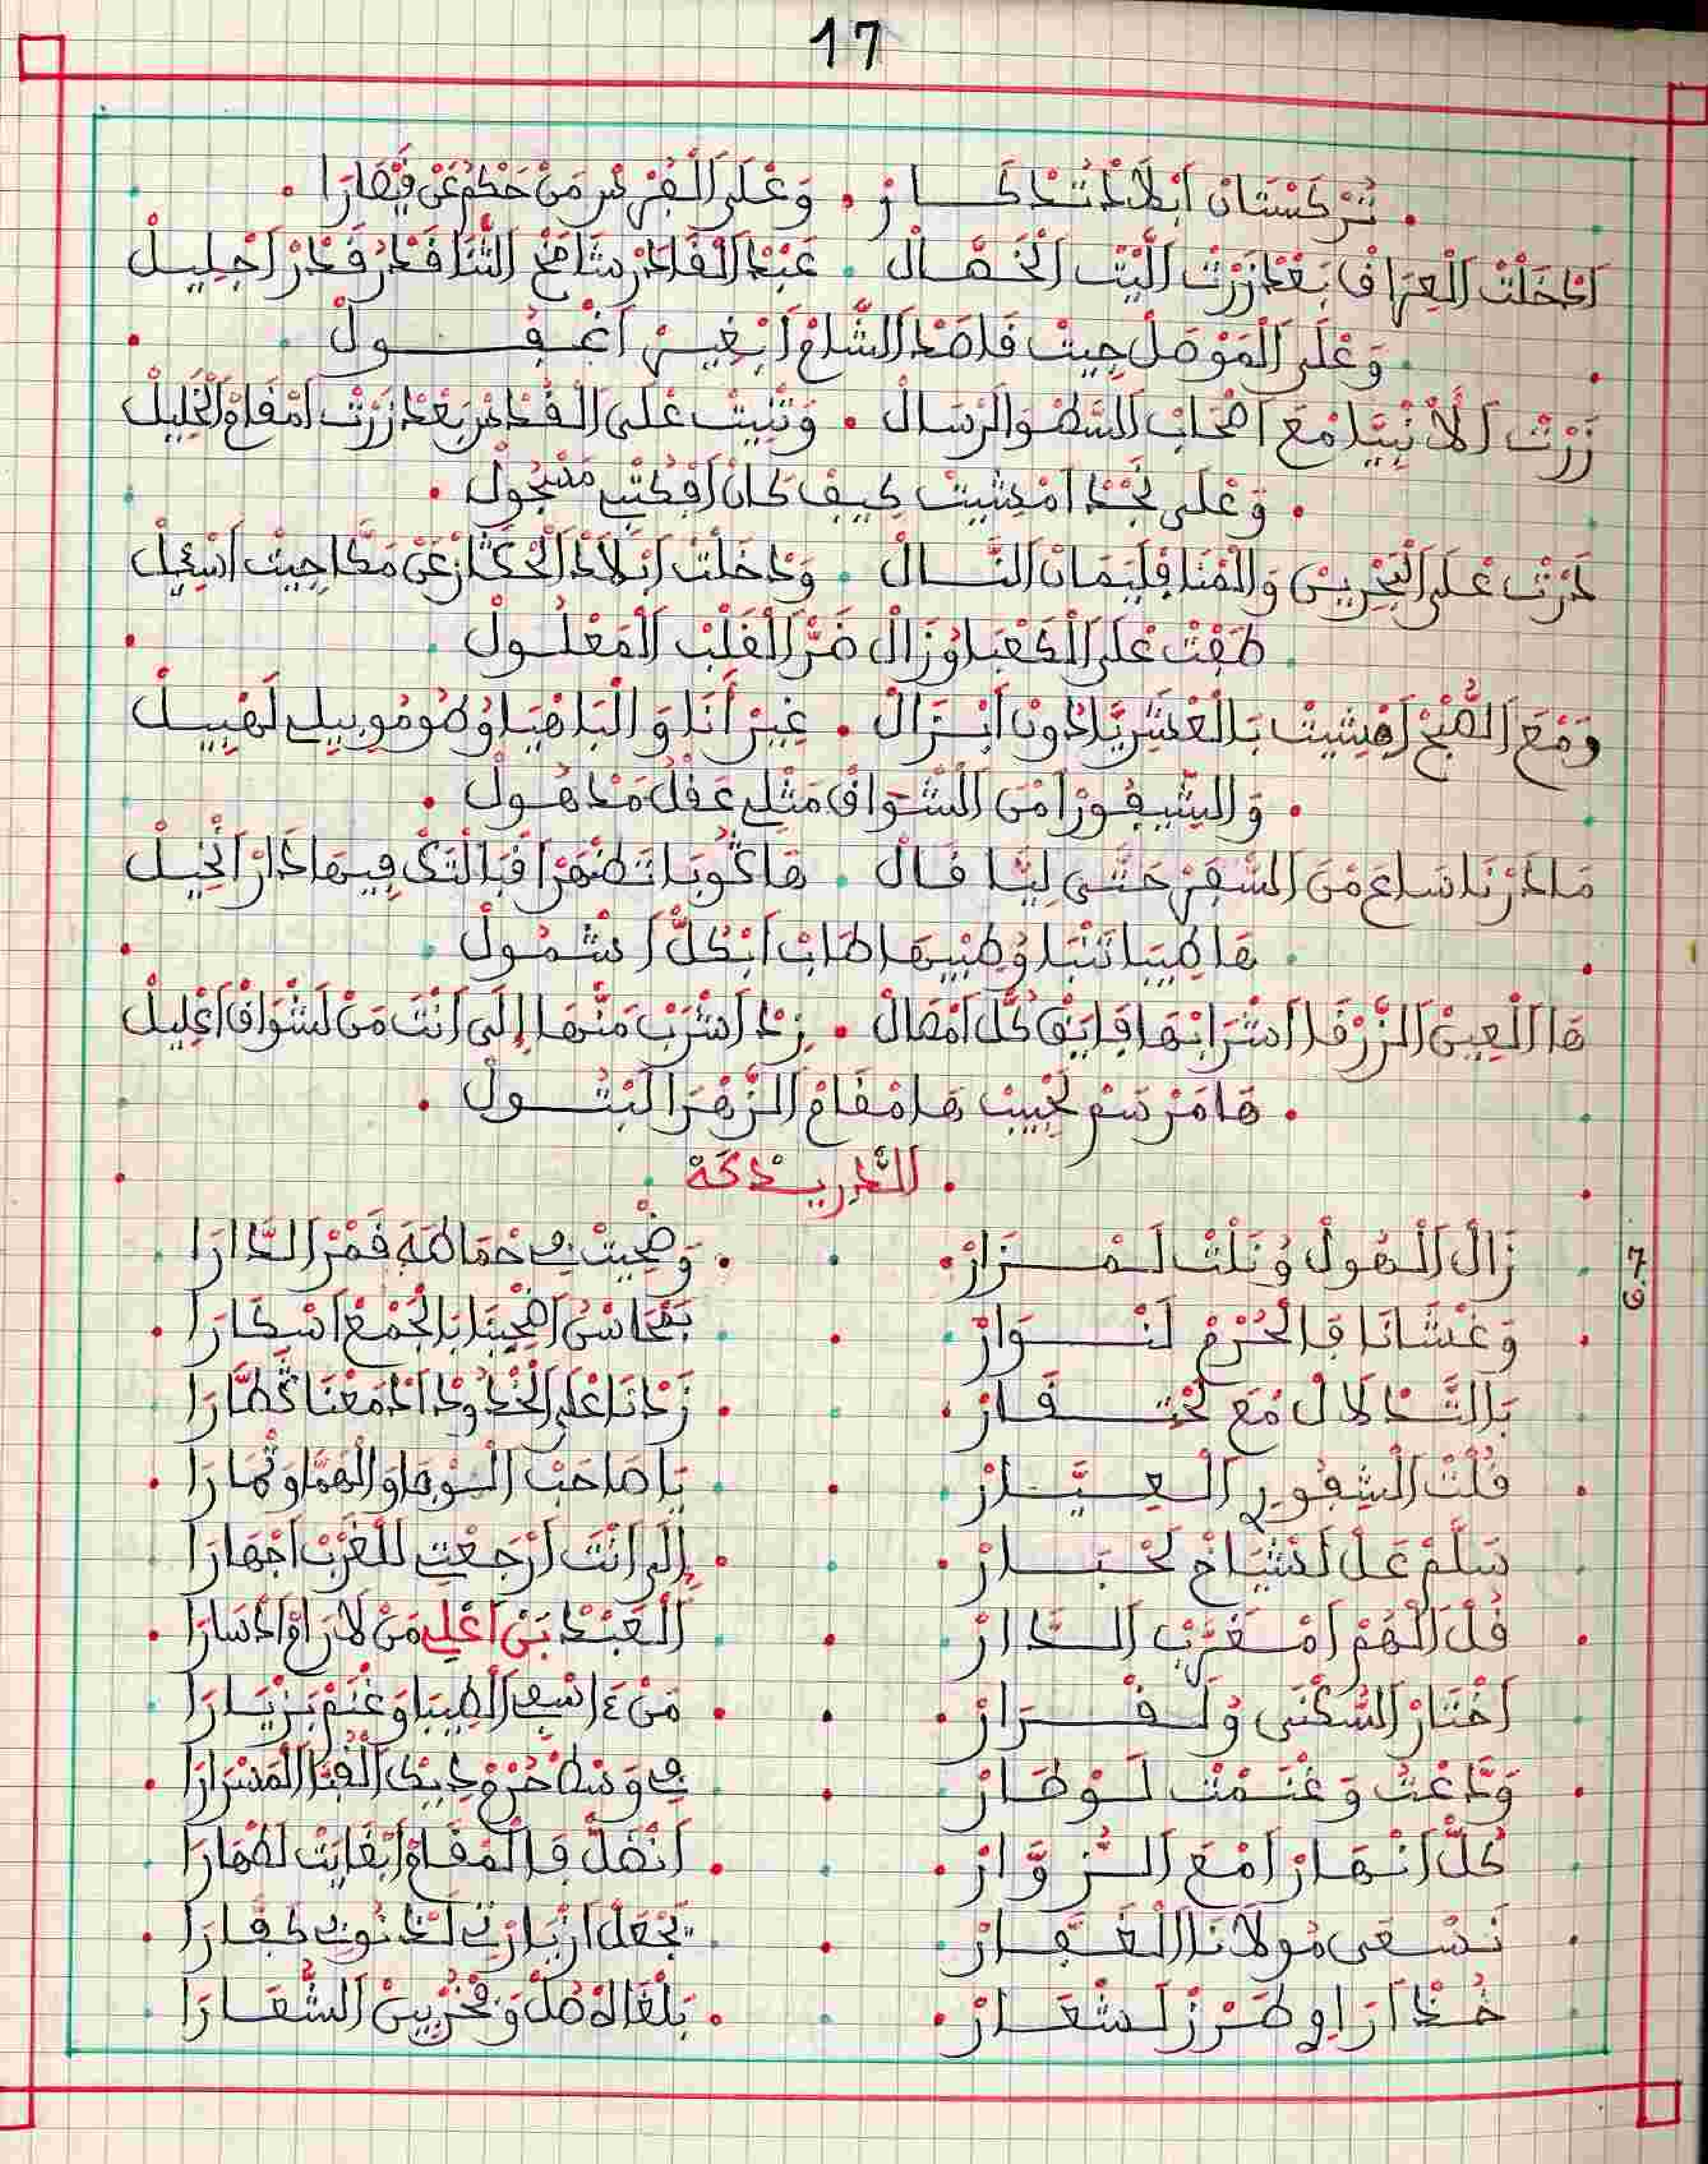 17
تُرْكَسْتَانْ ابْلَادْ تَدْكَارْ . وَعْلَى الْفُرْسْ مَنْ حَكْمْ عَنْ فِيقَارَا
ادْخَلْتْ الْعِرَاقْ بَعْدْ زَرْتْ اللِّيتْ الْخَصَّالْ . عَبْدْ الْقَادَرْ شَامَخْ الثْنَا قَدْرْ قَدْرْ اجْلِيلْ
وَعْلَى الْمَوْصَلْ جِيتْ قَاصَدْ الشَّامْ ابْغِيرْ اغْفُولْ
زَرْتْ الَانْبِيَا مْعَ اصْحَابْ السَّطْوَ الرْسَالْ . وَثْنِيتْ عْلَى الْقُدْسْ بَعْدْ زَرْتْ امْقَامْ الْخْلِيلْ
وَعْلَى نَجْدْ امْشِيتْ كِيفْ كَانْ افْكَتْبِي مَسْجُولْ
دَرْتْ عْلَى الْبَحْرِينْ وَالْمْنَافْلِيمَانْ النَّالْ . وَدْخَلْتْ ابْلَادْ الْحْكَّازْ عَنْ مَكَّا جِيتْ اسْئِيلْ
طَفْتْ عْلَى الْكَعْبَا وُزَالْ ضَرّْ الْقَلْبْ الْمَعْلُولْ
وَمْعَ الصُّبْحْ امْشِيتْ بَالْعْشَرِيَّا دُونْ ابْزَالْ . غِيرْ أَنَا وَالْبَاهْيَا وُطُومُوبِيلِي لَهْبِيلْ
وَالشِّيفُورْ امْنْ الشْوَاقْ مَثْلِي عَقْلُ مَدْهُولْ
مَادَرْنَا سَاعَ مْنْ السْفَرْ حَتَّى لِيَّا قَالْ . هَاكُوبَا تَظْهَرْ اقْبَالْتَكْ فِيهَا دَارْ انْخِيلْ
هَا طِيبَا تَنْبَا وُطِيبْهَا طَابْ ابْكُلّْ اشْمُولْ
هَا الْعِينْ الزَّرْقَا اشْرَابْهَا فَايَقْ كُلّْ امْصَالْ . زِدْ اشْرَبْ مَنْهَا إِلَى انْتَ مَنْ لَشْوَاقْ اعْلِيلْ
هَامَرْسَمْ لَحْبِيبْ هَامْقَامْ الزَّهْرَا الْبْثُولْ
الدْرِيدْكَةْ
زَالْ الْهُولْ وُنَلْتْ لَمْزَارْ . وَضْحِيتْ فِي حْمَا طَهَ قَمْرْ الدَّارَا
وَغْشَانَا فَالْحُرْمْ لَنْوَارْ . بَمْحَاسْنُ اضْحِينَا بَالْجَمْعْ اسْكَارَا
بَالتَّدْلَالْ مْعَ لَحْتْقَارْ . زَدْنَا عْلَى الْخْدُودْ ادْمَعْنَا قَطَّارَا
قُلْتْ الشِّيفُورِي الْعِيَّارْ . يَا صَاحَبْ الْوفَا وَالْهَمَّا وَثْمَارَا
سَلَّمْ عَلْ لَشْيَاخْ لَحْبَارْ . إِلَى انْتَ ارْجَعْتِ للْغَرْبْ اجْهَارَا
قُلْ الْهُمْ امْغَرَّبْ الدَّارْ . الْعَبْدْ بَنْ اعْلِي مَنْ لَارَامْ ادْسَارَا
اخْتَارْ السُّكْنَى وُلَقْرَارْ . مَنْ ءَاسْفِي الْطِيبَا وَغْنَمْ بَزْيَارَا
وَدَّعْتْ وَغْنَمْتْ لَوْطَارْ . فِي وَسْطْ حُرْمْ دِيكْ الْقُبَّا الْمَسْرَارَا
كُلّْ انْهَارْ امْعَ الزُّوَّارْ . انْضَلّْ فَالْمْقَامْ ابْغَايَتْ لَطْهَارَا
نَسْعَى مُولَانَا الْغَفَّارْ . يَجْعَلْ ازْيَارْتِي لَدْنُوبِي كَفَّارَا
خُدْ ارَاوِي طَرْزْ لَشْعَارْ . بَلْغَاهْ صُلْ وَفْخُرْ بِينْ الشُّعَارَا